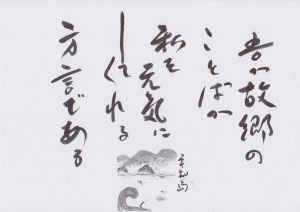 吾が故郷の
ことばが
私を元気に
してくれる
方言である